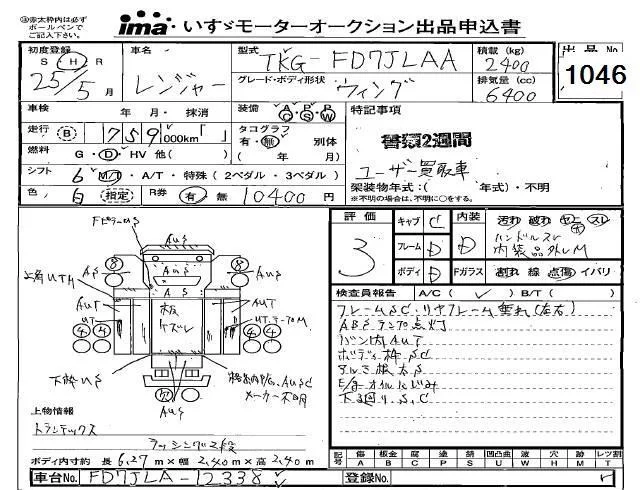 ㊟赤太枠内は必ず
ボールペンで
ご記入下さい。
ima いすゞモーターオークション出品申込書
初度登録
S H R
25/5月
車名
レンジャー
型式
TKG-FD7JLAA
グレード・ボディ形状
ウィング
積載 (kg)
2400
排気量 (cc)
6400
出品No
1046
車検
年・月・抹消
装備
A P P
C S W
特記事項
走行 B 759,000km「 」
タコグラフ
有・無 別体
( 年 月)
書類2週間
燃料 G・D・HV 他( )
ユーザー買取車
シフト 6 M/T・A/T・特殊(2ペダル・3ペダル)
架装物年式:( 年式)・不明
※不明の場合は、不明に○をする。
色 白 指定 R券 有 無 10400円
評価
3
キャブ C
フレーム D
ボディ D
内装
D
Fガラス
汚れ 破れ ヤニ スレ
ハンドルスレ
内装品外しM
割れ 線 点傷 イバリ
検査員報告 A/C( ✓ ) B/T( )
フレームSC・リヤフレーム垂れ(左右)
ABSランプ点灯
バン内AUT
ボデー枠SC
アルミ根太S
E/gオイルにじみ
下廻りS,C
FピラーUS
AUS
AS
8
8
AUS
AUS
AS
上角UTH
AUT
UT
板
ケズレ
AUT
UT,テープM
4 4
4 4
下枠US
欠
AUS
メーカー不明
上物情報
トランテックス
ラッシング2段
ボディ内寸約 長6.27m×幅2.40m×高2.40m
記号
傷 A
板金 B
腐 C
塗 P
錆 S
凹凸曲 U
波 W
穴 H
跡 M
レツ割 T
車台No. FD7JLA-12338
登録No.